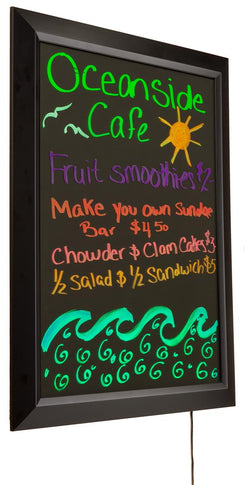 Oceanside
Cafe
Fruit smoothies $2
Make you own Sundae
Bar $4.50
Chowder & Clam Cakes $3
½ Salad & ½ Sandwich $5